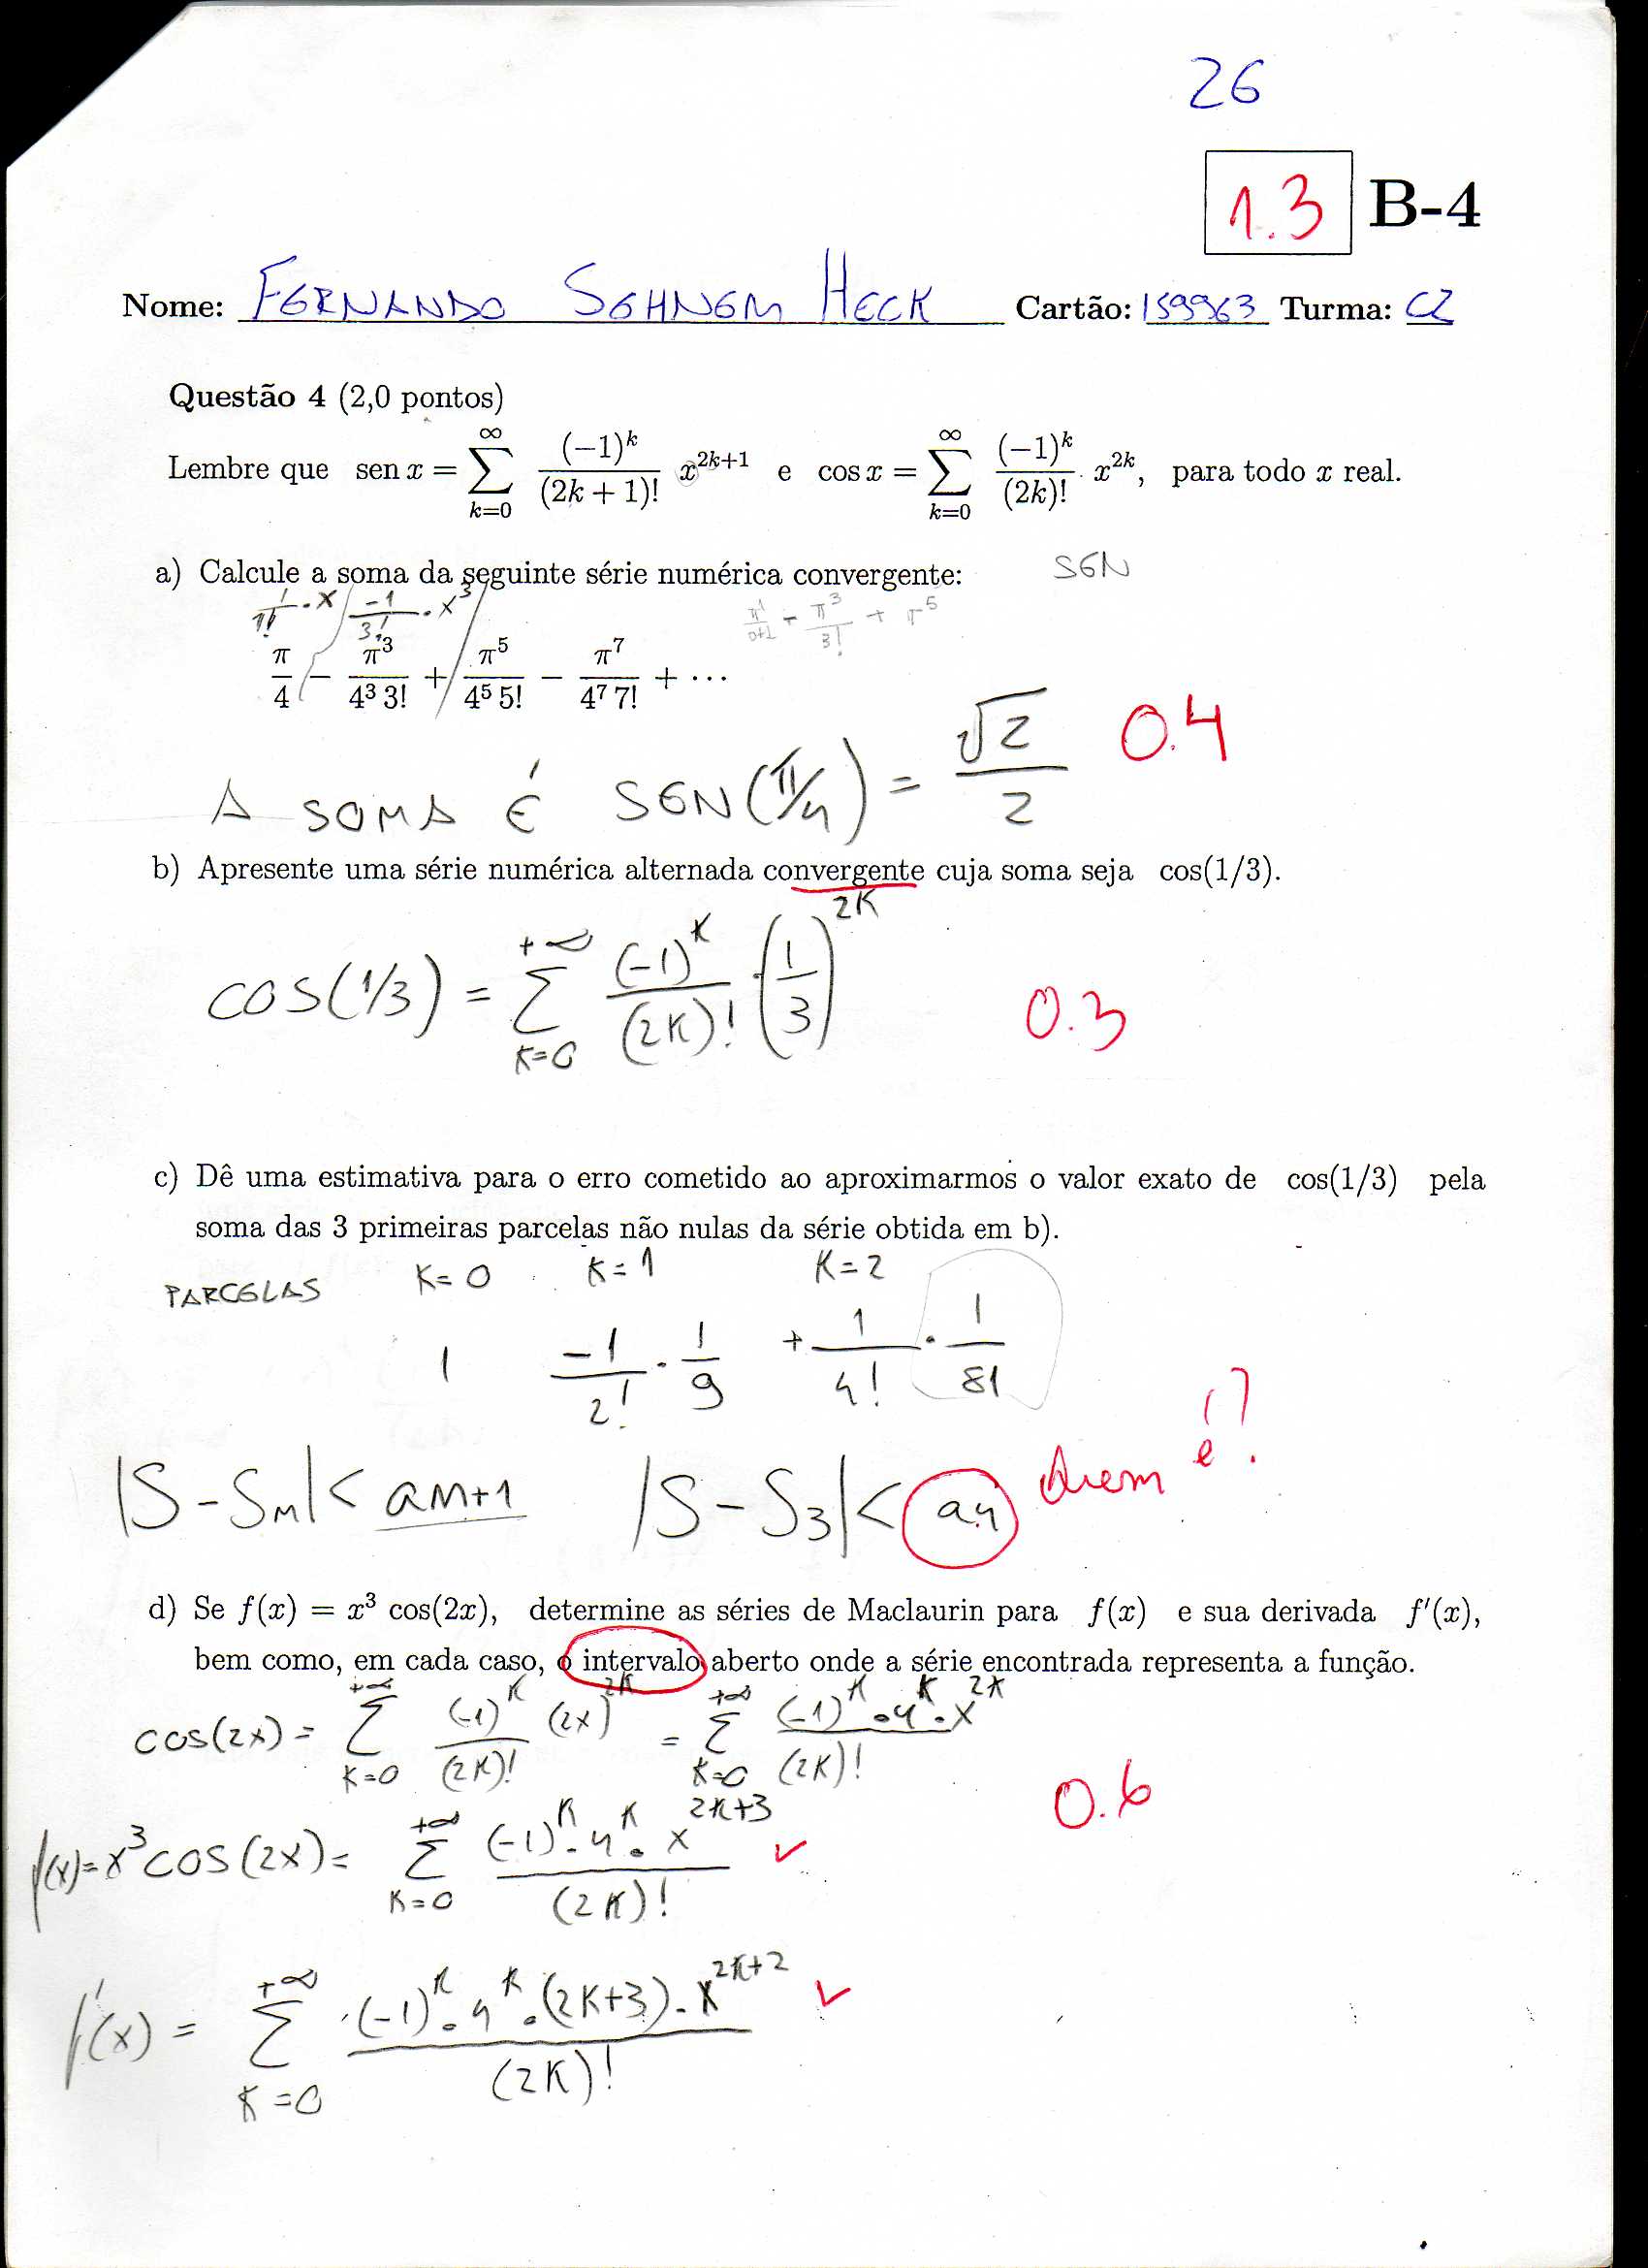 26
1.3 B-4
Nome: FERNANDO SEHNEM HECK Cartão: 159963 Turma: C2
Questão 4 (2,0 pontos)
Lembre que sen x = ∑_{k=0}^{∞} (-1)^k/(2k+1)! x^{2k+1} e cos x = ∑_{k=0}^{∞} (-1)^k/(2k)! x^{2k}, para todo x real.
a) Calcule a soma da seguinte série numérica convergente: SEN
1/1! · x / -1/3! · x^3 / π^1/0+1 - π^3/3! + π^5
π/4 - π^3/4^3 3! + π^5/4^5 5! - π^7/4^7 7! + ···
A SOMA É SEN(π/4) = √2/2 0.4
b) Apresente uma série numérica alternada convergente cuja soma seja cos(1/3).
COS(1/3) = ∑_{K=0}^{+∞} (-1)^K/(2K)! · (1/3)^{2K} 0.3
c) Dê uma estimativa para o erro cometido ao aproximarmos o valor exato de cos(1/3) pela
soma das 3 primeiras parcelas não nulas da série obtida em b).
PARCELAS K=0 K=1 K=2
1 -1/2! · 1/9 + 1/4! · 1/81
|S - Sn| < an+1 |S - S3| < a4 quem é?
d) Se f(x) = x^3 cos(2x), determine as séries de Maclaurin para f(x) e sua derivada f'(x),
bem como, em cada caso, o intervalo aberto onde a série encontrada representa a função.
COS(2x) = ∑_{K=0}^{+∞} (-1)^K/(2K)! (2x)^{2K} = ∑_{K=0}^{+∞} (-1)^K · 4^K · x^{2K}/(2K)!
0.6
f(x) = x^3 COS(2x) = ∑_{K=0}^{+∞} (-1)^K · 4^K · x^{2K+3}/(2K)! ✓
f'(x) = ∑_{K=0}^{+∞} (-1)^K · 4^K · (2K+3) · x^{2K+2}/(2K)! ✓